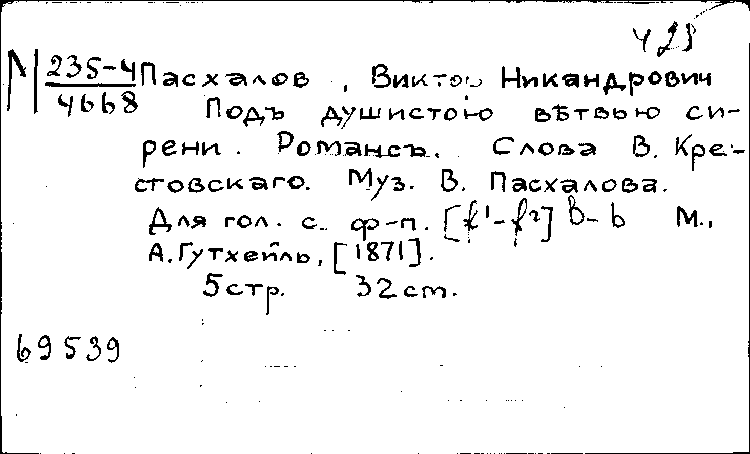 423
М 235-4 Пасхалов, Виктор Никандрович
4668 Подъ душистою вѣтвью си-
рени. Романсъ. Слова В. Кре-
стовскаго. Муз. В. Пасхалова.
Для гол. с ф-п. [f¹-f²] B-b М.,
А. Гутхейль, [1871].
5 стр. 32 cm.
69539